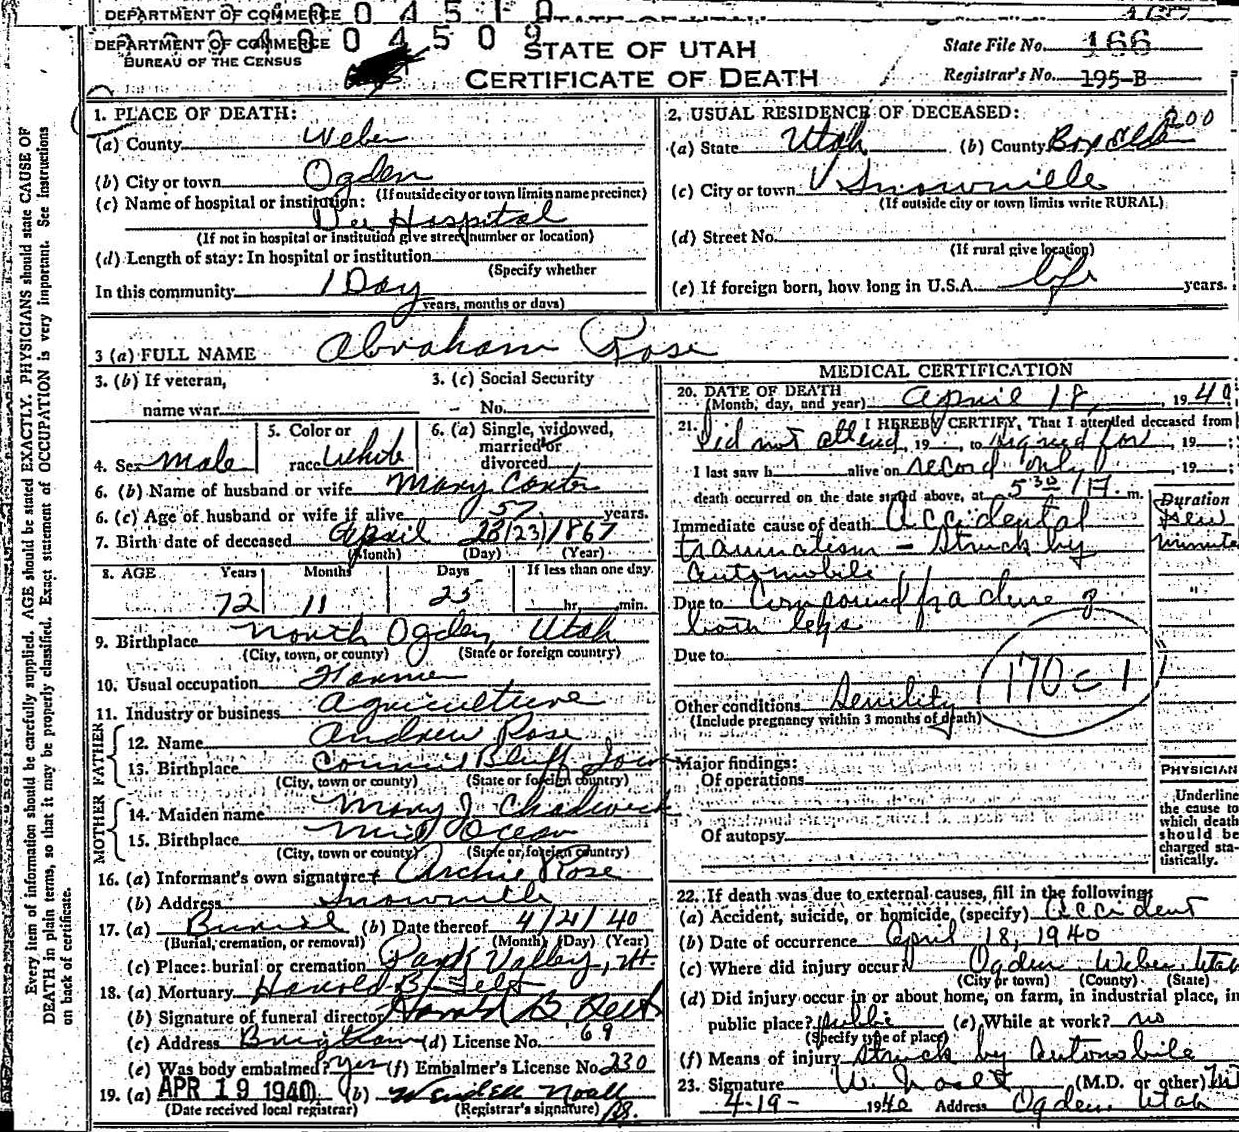 DEPARTMENT OF COMMERCE
DEPARTMENT OF COMMERCE
BUREAU OF THE CENSUS
004509
STATE OF UTAH
CERTIFICATE OF DEATH
State File No. 166
Registrar's No. 195-B
Every item of information should be carefully supplied. AGE should be stated EXACTLY. PHYSICIANS should state CAUSE OF
DEATH in plain terms, so that it may be properly classified. Exact statement of OCCUPATION is very important. See instructions
on back of certificate.
1. PLACE OF DEATH:
(a) County Weber
(b) City or town Ogden
(If outside city or town limits name precinct)
(c) Name of hospital or institution:
Dee Hospital
(If not in hospital or institution give street number or location)
(d) Length of stay: In hospital or institution
(Specify whether
In this community 1 Day
years, months or days)
2. USUAL RESIDENCE OF DECEASED:
(a) State Utah (b) County Box Elder
(c) City or town Snowville
(If outside city or town limits write RURAL)
(d) Street No.
(If rural give location)
(e) If foreign born, how long in U.S.A. life years.
3 (a) FULL NAME Abraham Rose
3. (b) If veteran,
name war
3. (c) Social Security
No.
4. Sex male
5. Color or
race White
6. (a) Single, widowed,
married or
divorced
6. (b) Name of husband or wife Mary
6. (c) Age of husband or wife if alive 57 years.
7. Birth date of deceased April 23 /23/1867
(Month) (Day) (Year)
8. AGE Years Months Days If less than one day
72 11 25 hr. min.
9. Birthplace North Ogden, Utah
(City, town, or county) (State or foreign country)
10. Usual occupation Farmer
11. Industry or business Agriculture
FATHER
12. Name Andrew Rose
13. Birthplace Council Bluff Iowa
(City, town or county) (State or foreign country)
MOTHER
14. Maiden name Mary J. Chadwick
15. Birthplace Mid Ocean
(City, town or county) (State or foreign country)
16. (a) Informant's own signature Archie Rose
(b) Address Snowville
17. (a) Burial (b) Date thereof 4/21/40
(Burial, cremation, or removal) (Month) (Day) (Year)
(c) Place: burial or cremation Park Valley, Ut.
18. (a) Mortuary Harold B. Felt
(b) Signature of funeral director Harold B. Felt
(c) Address Brigham (d) License No. 69
(e) Was body embalmed? yes (f) Embalmer's License No. 230
19. (a) APR 19 1940 (b) Wendell Noall
(Date received local registrar) (Registrar's signature)
MEDICAL CERTIFICATION
20. DATE OF DEATH
(Month, day, and year) April 18, 1940
21. I HEREBY CERTIFY, That I attended deceased from
Did not attend, 19 to signed for, 19 ;
I last saw h alive on record only, 19 ;
death occurred on the date stated above, at 5:30 m.
Duration
Immediate cause of death Accidental
few
traumatism - Struck by
minutes
automobile
Due to Compound fracture of
"
both legs
Due to
170c-1
Other conditions Senility
(Include pregnancy within 3 months of death)
Major findings:
Of operations
Of autopsy
PHYSICIAN
Underline
the cause to
which death
should be
charged sta-
tistically.
22. If death was due to external causes, fill in the following:
(a) Accident, suicide, or homicide, (specify) Accident
(b) Date of occurrence April 18, 1940
(c) Where did injury occur? Ogden Weber Utah
(City or town) (County) (State)
(d) Did injury occur in or about home, on farm, in industrial place, in
public place? public (e) While at work? no
(Specify type of place)
(f) Means of injury Struck by Automobile
23. Signature W. (M.D. or other)
4-19- 1940 Address Ogden, Utah